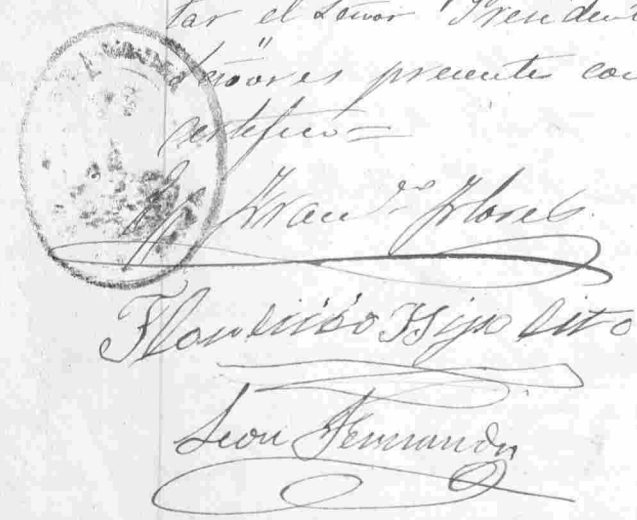 tar el Señor President
Señores presentes con
certifico=
Fran.co Flores
Florencio Hipolito
Leon Fernandez